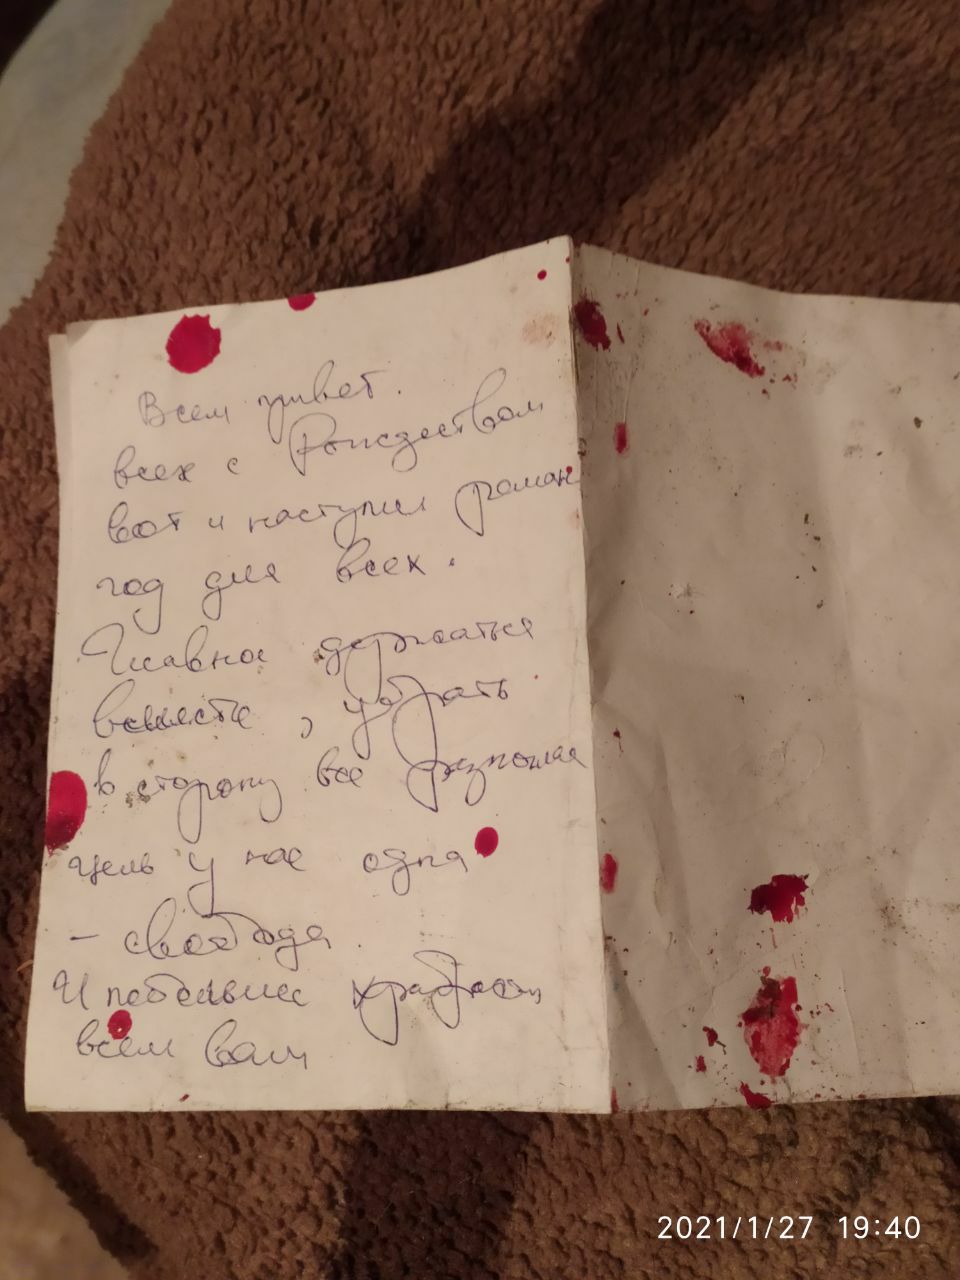 Всем привет.
всех с Рождеством
вот и наступил
год для всех.
Главное держаться
вместе, убрать
в сторону все
цель у нас одна
- свобода
И побольше храбрости
всем вам
2021/1/27 19:40